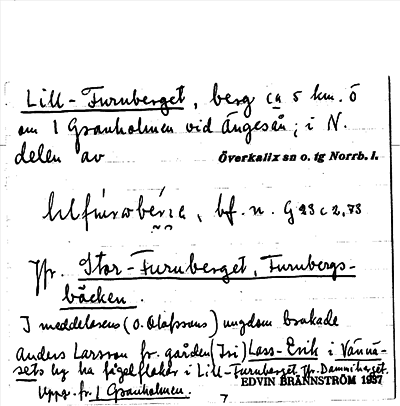 Lill-Furuberget, berg ca 5 km. ö
om 1 Granholmen vid Ängesån; i N.
delen av Överkalix sn o. tg Norrb. l.
bf. n. G 23 c 2,73
Jfr. Stor-Furuberget, Furubergs-
bäcken.
I meddelarens (O. Olofssons) ungdom brukade
Anders Larsson fr. gården (Isi) Lass-Erik i Vännä-
sets by ha fågelflakar i Lill-Furuberget. Jfr. Damiberget.
Uppg. fr. 1 Granholmen.
EDVIN BRÄNNSTRÖM 1937
7